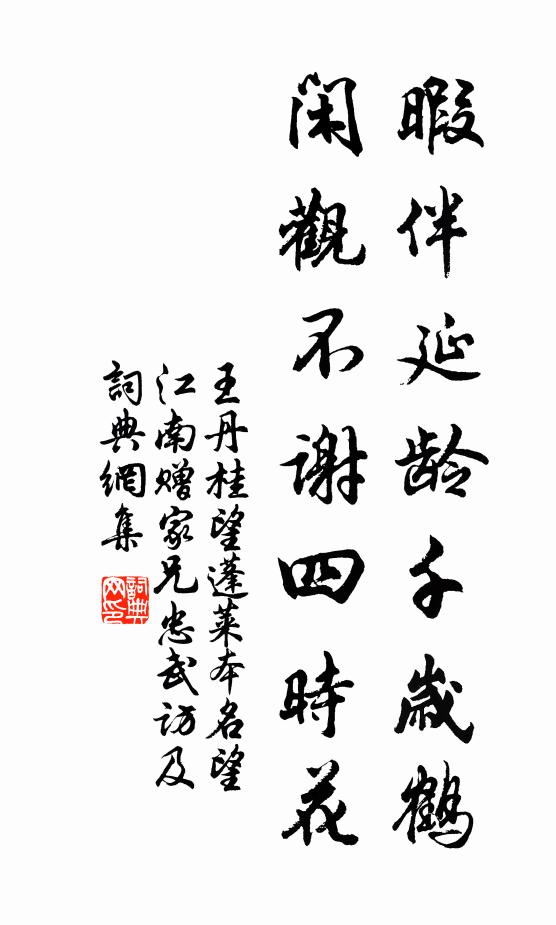 暇伴延龄千歲鶴
閑觀不谢四時花
王丹桂望蓬萊本名望
江南贈家兄忠武訪及
詞典網集
詞典
网印